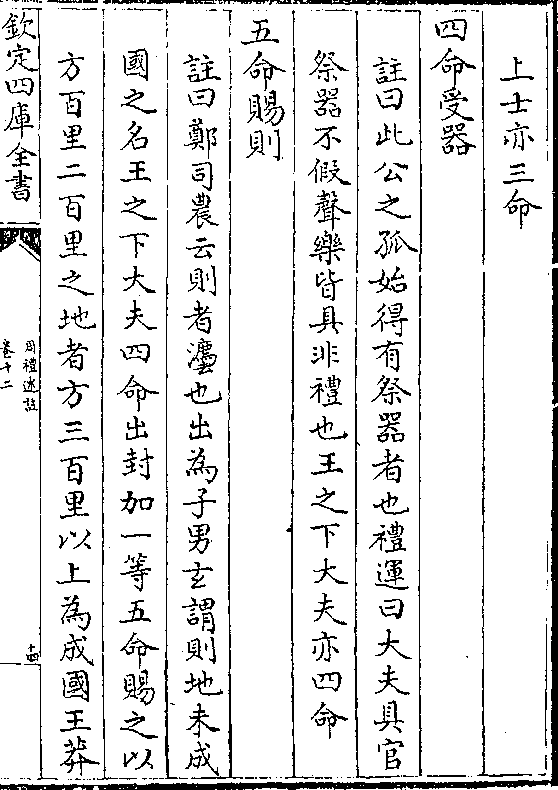 上士亦三命
四命受器
註曰此公之孤始得有祭器者也禮運曰大夫具官
祭器不假聲樂皆具非禮也王之下大夫亦四命
五命賜則
註曰鄭司農云則者灋也出為子男玄謂則地未成
國之名王之下大夫四命出封加一等五命賜之以
方百里二百里之地者方三百里以上為成國王莽
欽定四庫全書
周禮述註
卷十二
十四